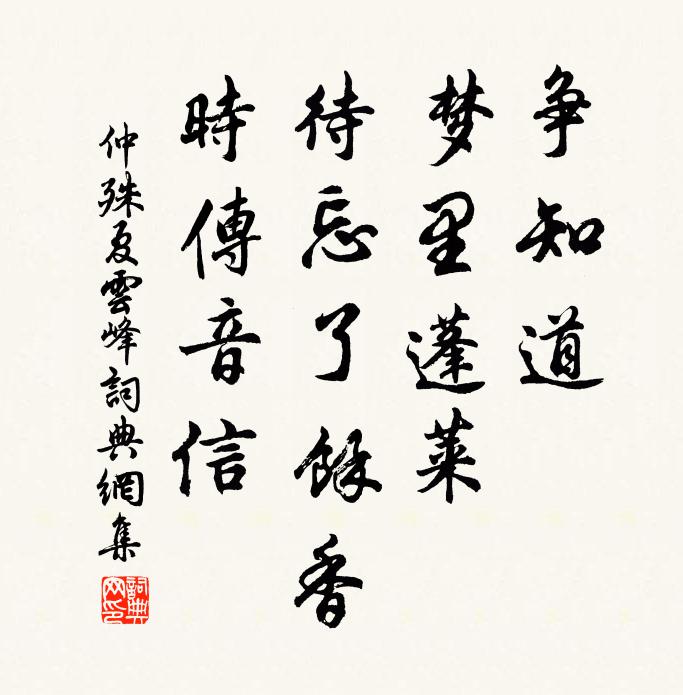 争知道
梦里蓬莱
待忘了餘香
時傳音信
仲殊夏雲峰詞典網集
詞典网印